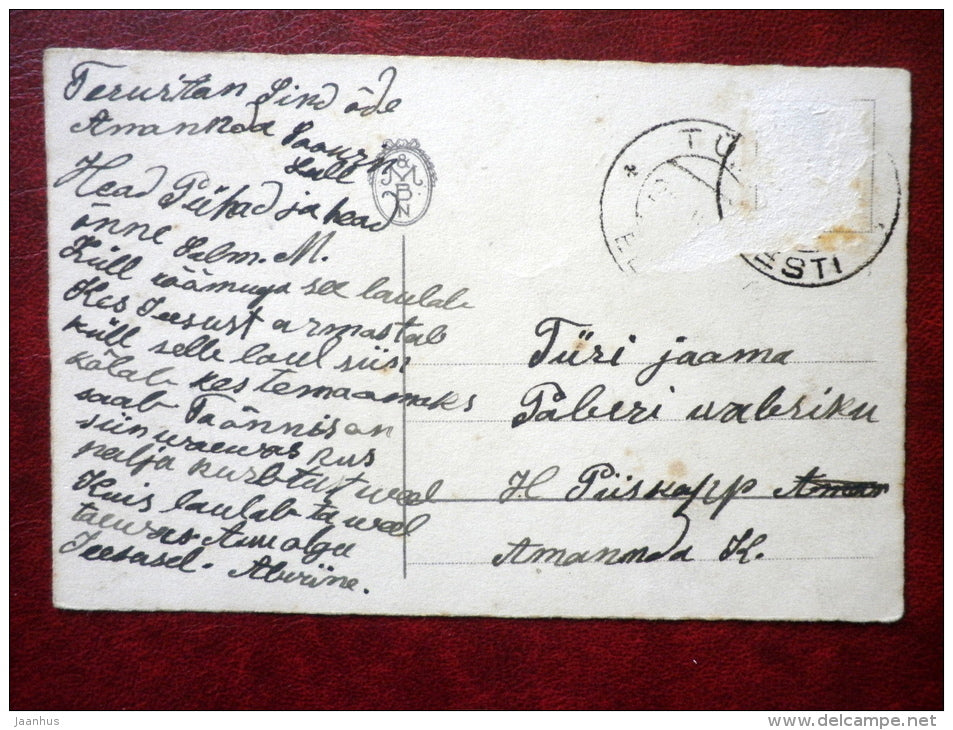 Terwitan Sind õde
Amanda
Lall
Head Pühad ja head
õnne Salm. M.
Küll rõõmuga see laulab
Kes Jeesust armastab
küll selle laul siis
kõlab kes tema omaks
saab Tõõnnison
siin waewas kus
palja kurbtust weel
Kuis laulab ta weel
taewas Au olgu
Jeesusel. Alwine.
&
M
B
N
TÜ
EESTI
Türi jaama
Paberi wabriku
H Piiskopp
Amanda K.
Jaanhus
www.delcampe.net